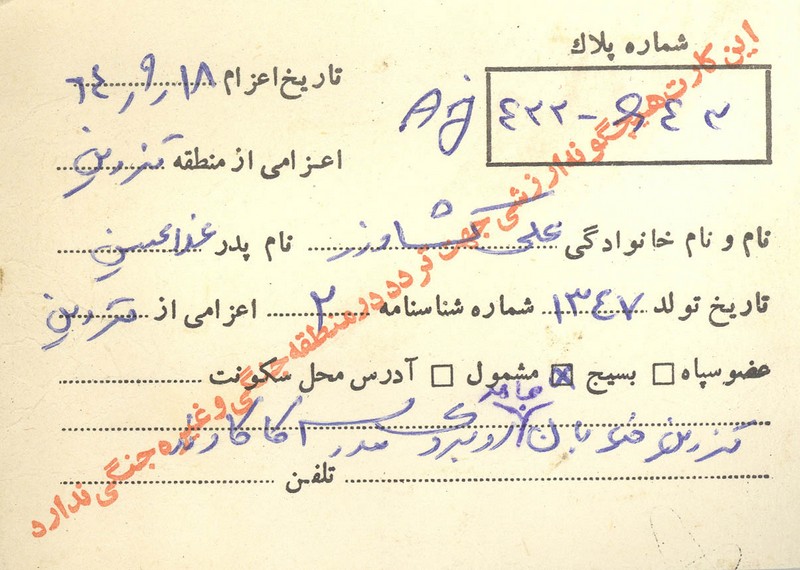 شماره پلاك
AJ ٤٢٢ - ٩٤٣
تاریخ اعزام ٦٤٫٩٫١٨
اعزامی از منطقه قزوین
نام و نام خانوادگی علی کشاورز نام پدر غلامحسین
تاریخ تولد ١٣٤٧ شماره شناسنامه ٢ اعزامی از قزوین
عضو سپاه بسیج مشمول آدرس محل سکونت
قزوین خیابان روبروی
تلفن
این کارت هیچگونه ارزشی جهت تردد در منطقه جنگی و غیره جنگی ندارد